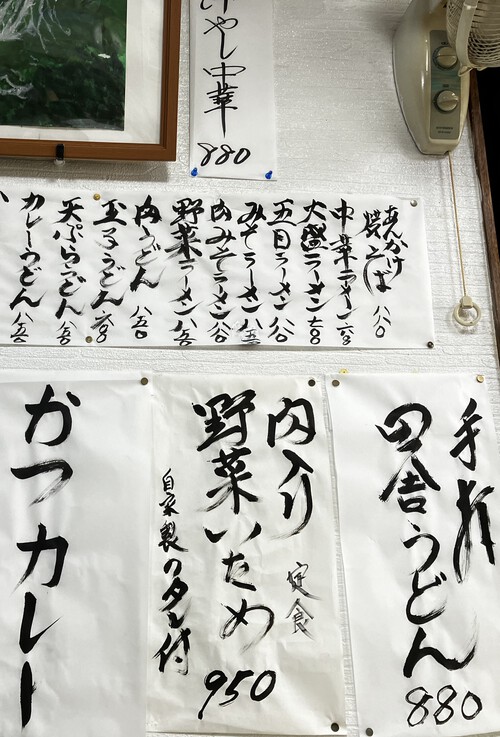 冷やし中華
880
あんかけ
焼そば 八八〇
中華ラーメン 六八〇
大盛ラーメン 七八〇
五目ラーメン 八八〇
みそラーメン 八五〇
肉みそラーメン
野菜ラーメン 八五〇
肉うどん 八五〇
玉子うどん
天ぷらうどん
カレーうどん 八五〇
手打
田舎うどん
880
肉入り
野菜いため
定食
自家製のタレ付
950
かつカレー